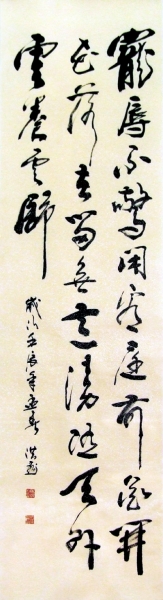 寵辱不驚閑看庭前花開
花落去留無意漫隨天外
雲卷雲舒
歲次壬辰年